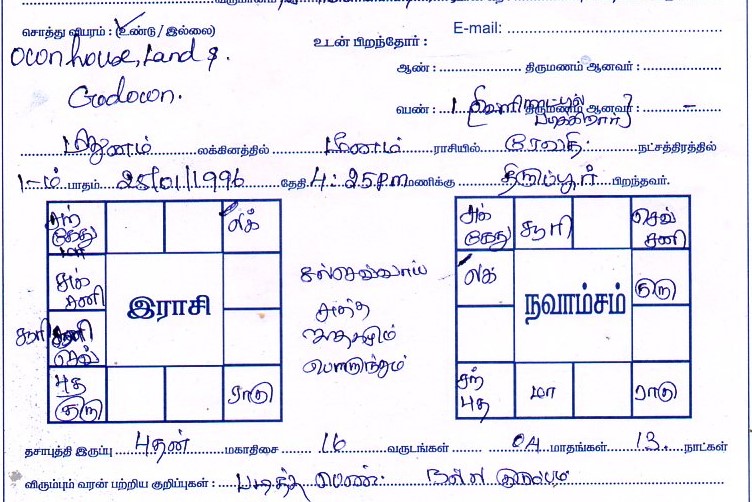 சொத்து விபரம் : (உண்டு / இல்லை)
E-mail:
Own house, Land &
Godown.
உடன் பிறந்தோர் :
ஆண் : திருமணம் ஆனவர் :
பெண் : 1 திருமணம் ஆனவர் : –
மிதுனம் லக்கினத்தில் மீனம் ராசியில் ரேவதி நட்சத்திரத்தில்
1-ம் பாதம் 25/01/1996 தேதி 4:25 PM மணிக்கு திருப்பூர் பிறந்தவர்.
சந் கேது மா
லக்
சுக் சனி
இராசி
சூரி
செவ்
புத குரு
ராகு
சுத்செவ்வாய்
ஜாதகமும்
பொருந்தும்
சுக் கேது
சூரி
செவ் சனி
லக்
குரு
நவாம்சம்
சந் புத
மா
ராகு
தசாபுத்தி இருப்பு புதன் மகாதிசை 16 வருடங்கள் 04 மாதங்கள் 13 நாட்கள்
விரும்பும் வரன் பற்றிய குறிப்புகள் : படித்த பெண். நல்ல குடும்பம்